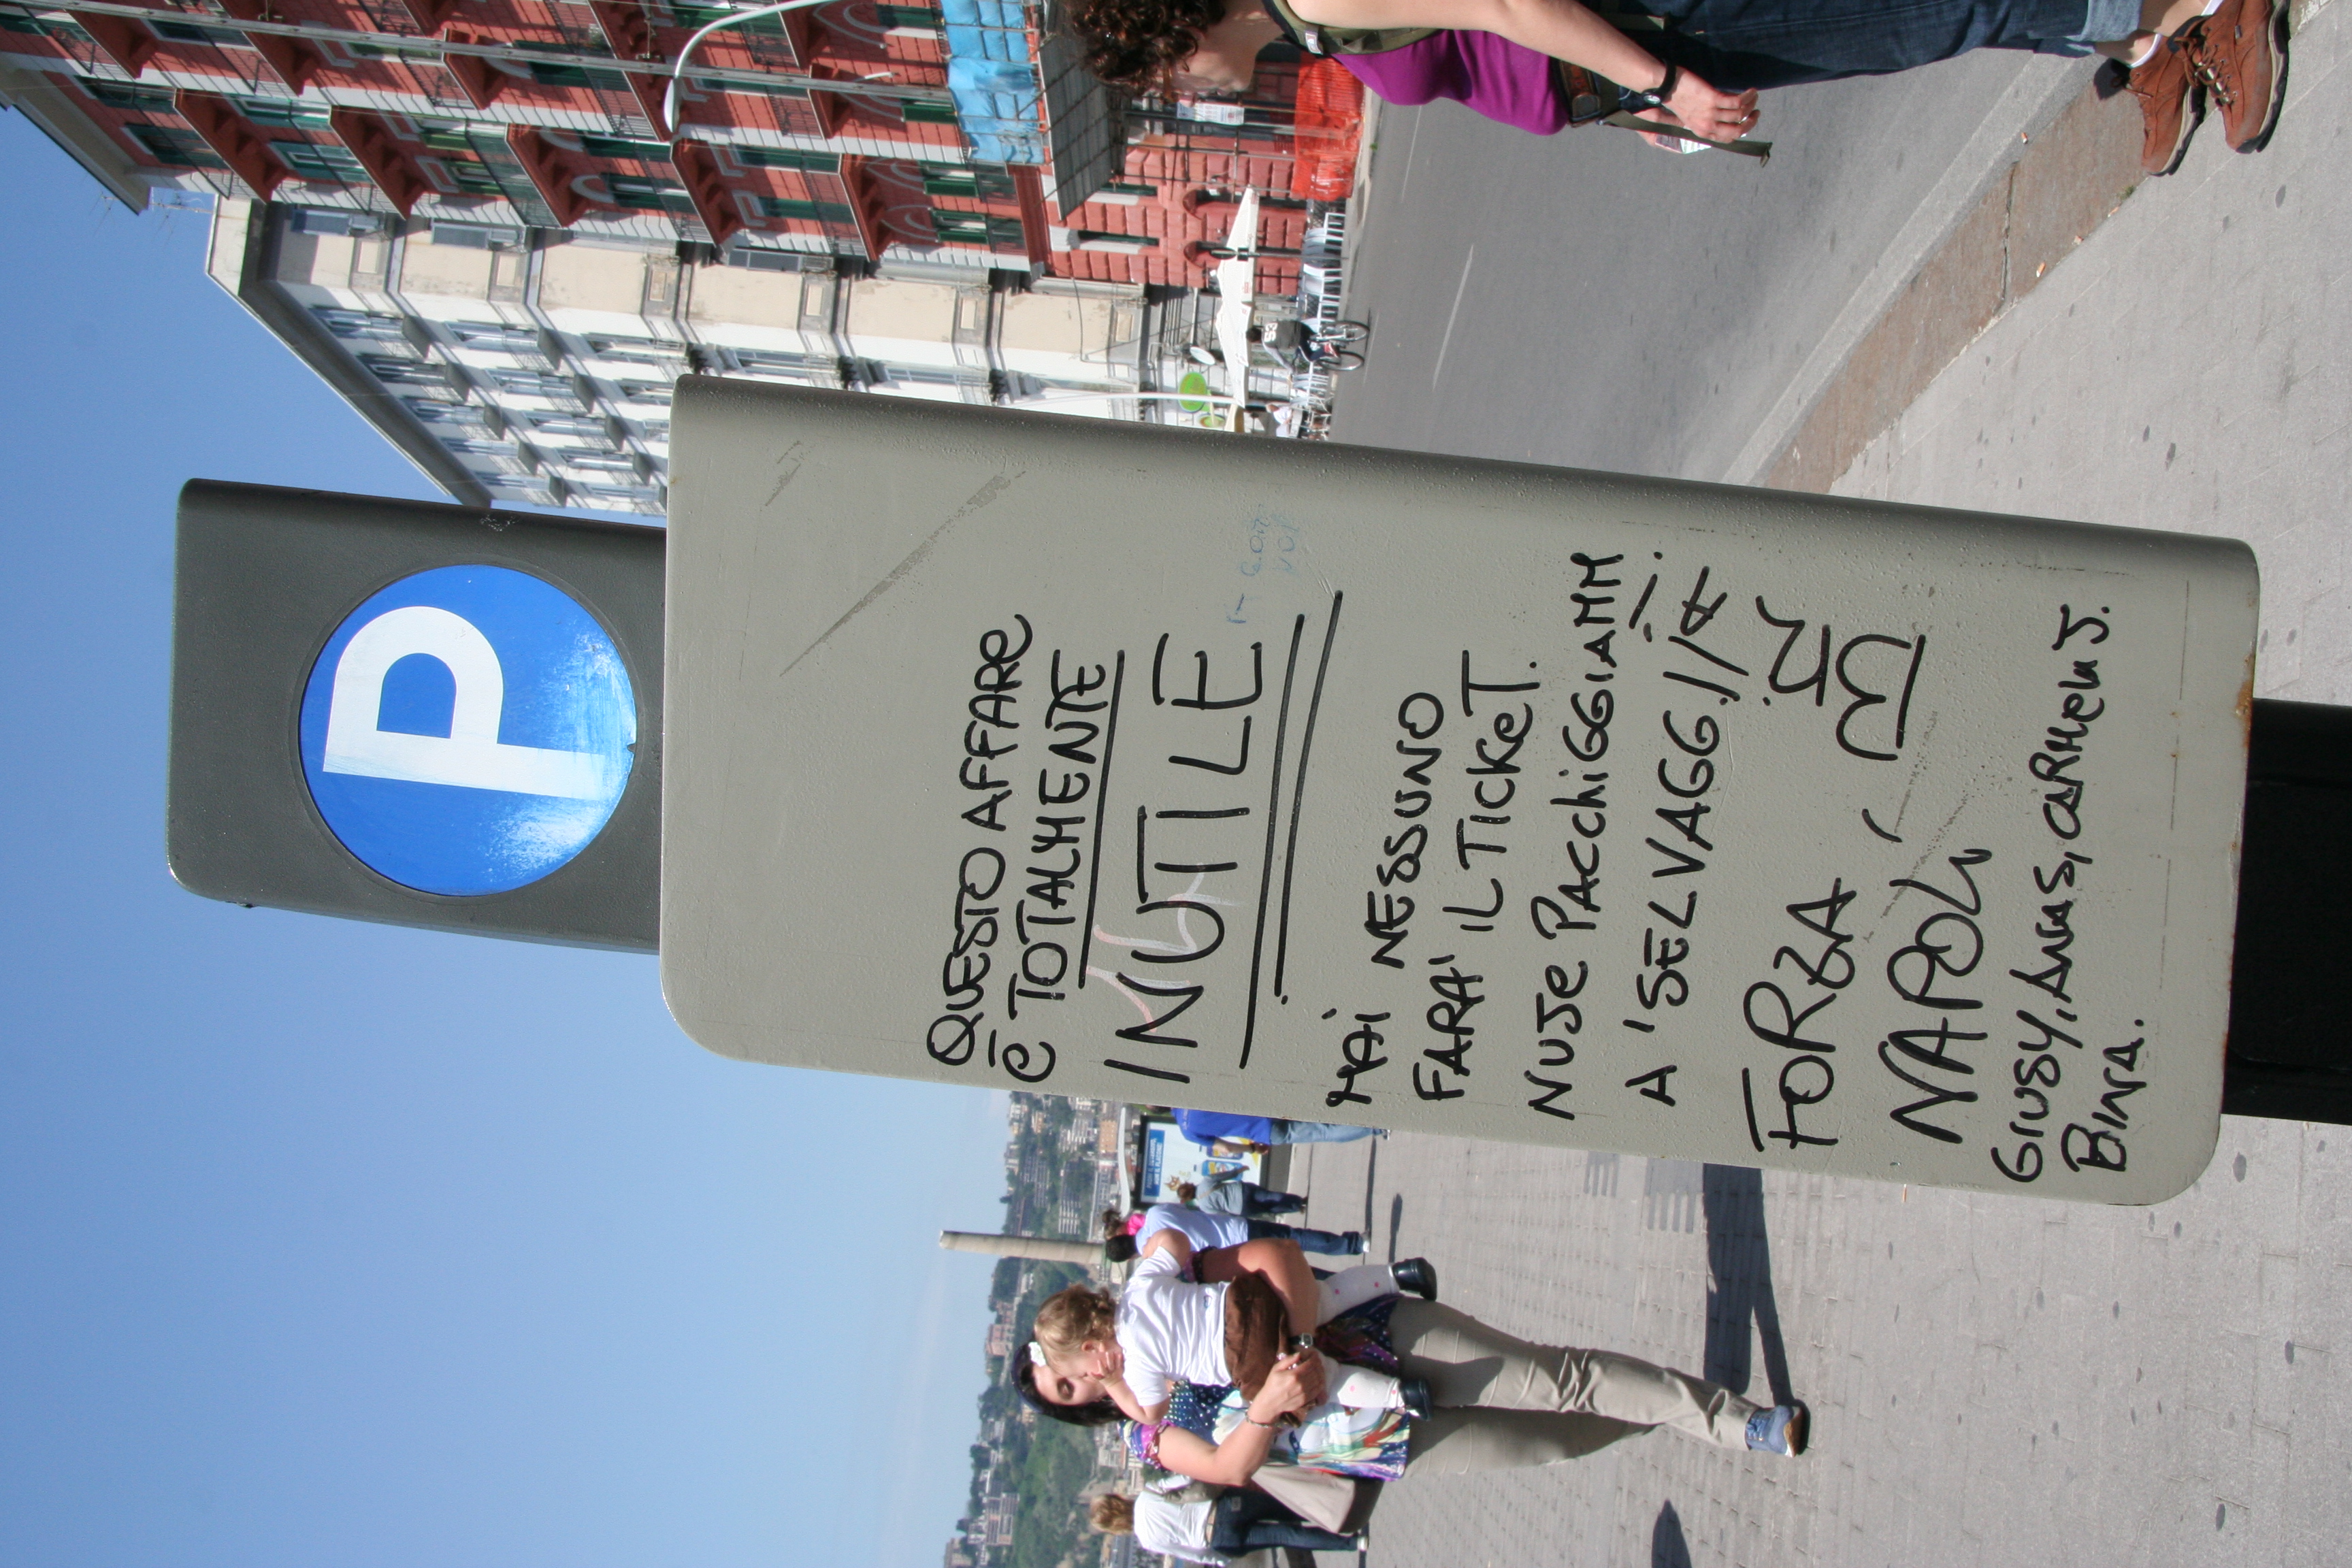 P
QUESTO AFFARE
È TOTALMENTE
INUTILE
MAI NESSUNO
FARA' IL TICKET.
NUJE PACCHIGGIAMM
A 'SELVAGG!!
FORZA
NAPOLI
GIUSY, ANAS, CARMEN J.
BINA.